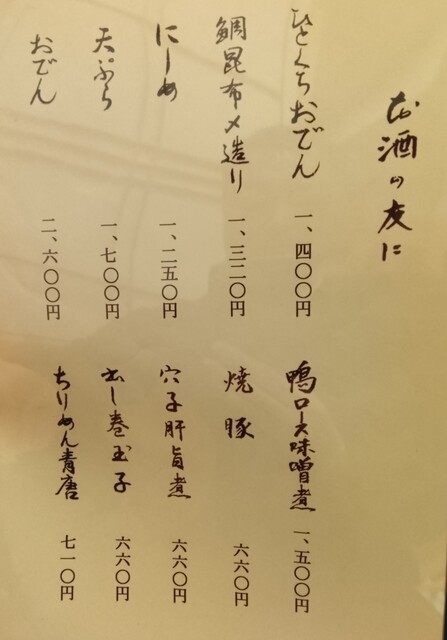 お酒の友に
ひとくちおでん 一、四〇〇円
鯛昆布〆造り 一、三二〇円
にしめ 一、二五〇円
天ぷら 一、七〇〇円
おでん 二、六〇〇円
鴨ロース味噌煮 一、五〇〇円
焼豚 六六〇円
穴子肝旨煮 六六〇円
出し巻玉子 六六〇円
ちりめん青唐 七一〇円